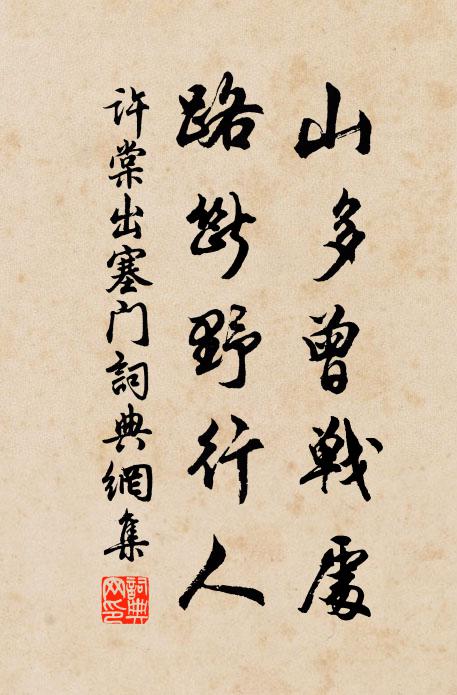 山多曾戰處
路斷野行人
許棠出塞門詞典網集
詞典网印